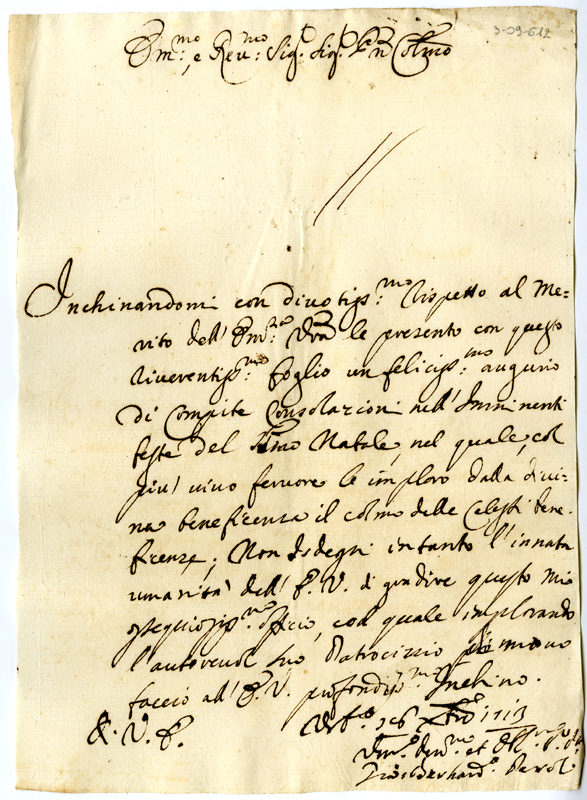 3-09-612
Em.mo, e Rev.mo Sig.r Sig.r P.ron Col.mo
Inchinandomi con divotiss.mo rispetto al Me-
rito dell' Em.za Vra le presento con questo
riverentiss.mo foglio un feliciss.mo augurio
di Compite Consolazioni nell' Imminenti
feste del SSmo Natale, nel quale, col
più vivo fervore le imploro dalla divi-
na beneficenza il colmo delle Celesti bene-
ficenze; Non isdegni intanto l'innata
umanità dell' E. V. di gradire questo mio
ossequiosiss.mo officio, col quale implorando
l'autorevol suo Patrocinio di nuovo
faccio all' E. V. profondiss.mo Inchino.
di V. E. 16 Xbre 1713